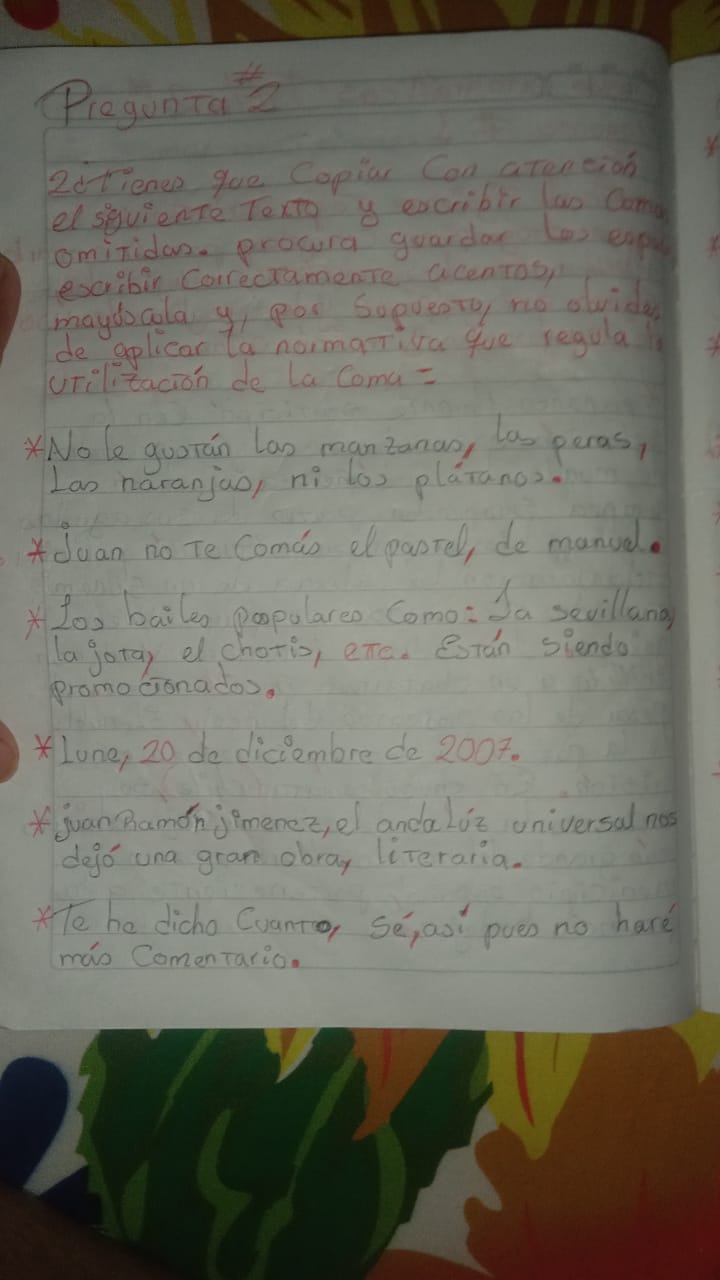 Pregunta #2
2=Tienes que Copiar Con atención
el siguiente Texto y escribir las Coma
omitidas. procura guardar los espa
escribir Correctamente acentos,
mayúscula y, por Supuesto, no olvides
de aplicar la normativa que regula l
utilización de la Coma=
*No le gustán las manzanas, las peras,
Las naranjas, ni los plátanos.
*Juan no Te Comás el pastel, de manuel.
*Los bailes populares Como: La sevillana,
la jota, el chotis, etc. Están Siendo
promocionados.
*Lune, 20 de diciembre de 2007.
*juan Ramón jimenez, el andalúz universal nos
dejó una gran obra, literaria.
*Te he dicho Cuanto, Sé, así pues no haré
más Comentario.